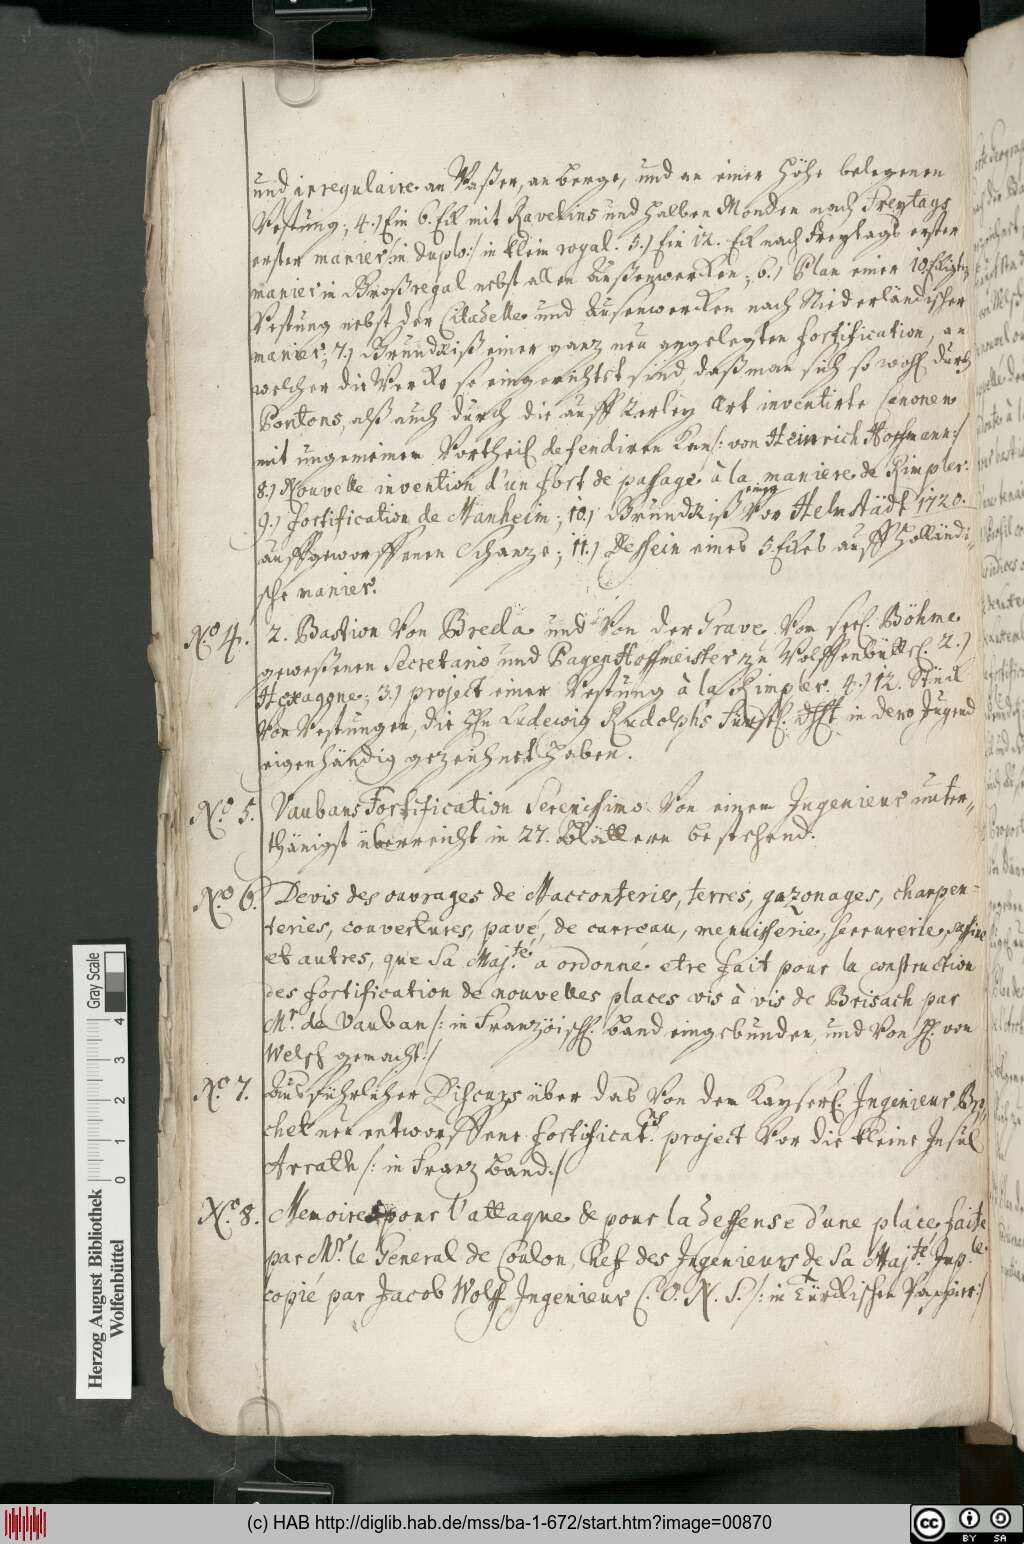 und irregulaire an Waßer, an berge, und an einer Höhe belegenen
Vestung; 4.) Ein 6. Eck mit Ravelins und halben Monden nach Freytags
erster manier /: in duplo:/ in klein royal. 5.) Ein 12. Eck nach Freytags erster
manier in Großregal nebst allen Außenwercken; 6.) Plan einer 10. Eckigten
Vestung nebst der Citadelle und Ausenwercken nach Niederländischer
manier; 7.) Grundriß einer ganz neu angelegten fortification, an
welcher die Wercke so eingerichtet sind, daß man sich so wohl durch
Pontons, alß auch durch die auff 4erley Art inventirte Canonen
mit ungemeinem Vortheil defendiren kan /: von Heinrich Hoffmann :/
8.) Nouvelle invention d'un fort de passage à la maniere de Rimpler.
9.) fortification de Manheim; 10.) Grundriß einer vor Helmstädt 1720.
auffgeworffenen Schanze; 11.) Dessein eines 5. Eckes auff Holländi-
sche manier.
No 4. 2. Bastion von Breda und von der Grave vom seel. Böhme
geweßenen Secretario und Pagen Hoffmeister zu Wolffenbüttel. 2.)
Hexagone; 3.) project einer Vestung à la Rimpler. 4.) 12. Stück
von Vestungen, die H. Ludewig Rudolphs Fürstl. Dhlt. in dero Jugend
eigenhändig gezeichnet haben.
No. 5. Vaubans Fortification Serenissimo von einem Ingenieur unter-
thänigst überreicht in 27. Blättern bestehend.
No 6. Devis des ouvrages de Macconteries, terres, gazonages, charpen=
teries, couvertures, pavé, de carreau, menuisserie, serrurerie,
et autres, que Sa Maj.te a ordonne etre fait pour la construction
des fortification de nouvelles places vis à vis de Brisach par
Mr. de Vauban /: in Französisch. band eingebunden, und von H. von
Welsch gemacht:/
No. 7. Ausführlicher Discurs über das von dem Kayserl. Ingenieur Be-
chet neu entworffene fortificat. project vor die kleine Insul
Arrath /: in Franz band:/
No. 8. Memoires pour l'attaque & pour la deffense d'une place faite
par Mr. le General de Coulon, Chef des Ingenieurs de Sa Maj.te Imp.le
copié par Jacob Wolff Ingenieur C. O. N. S. /: in Türckischen Pappier:/
Herzog August Bibliothek
Wolfenbüttel
0 1 2 3 4
Gray Scale
(c) HAB http://diglib.hab.de/mss/ba-1-672/start.htm?image=00870
cc BY SA